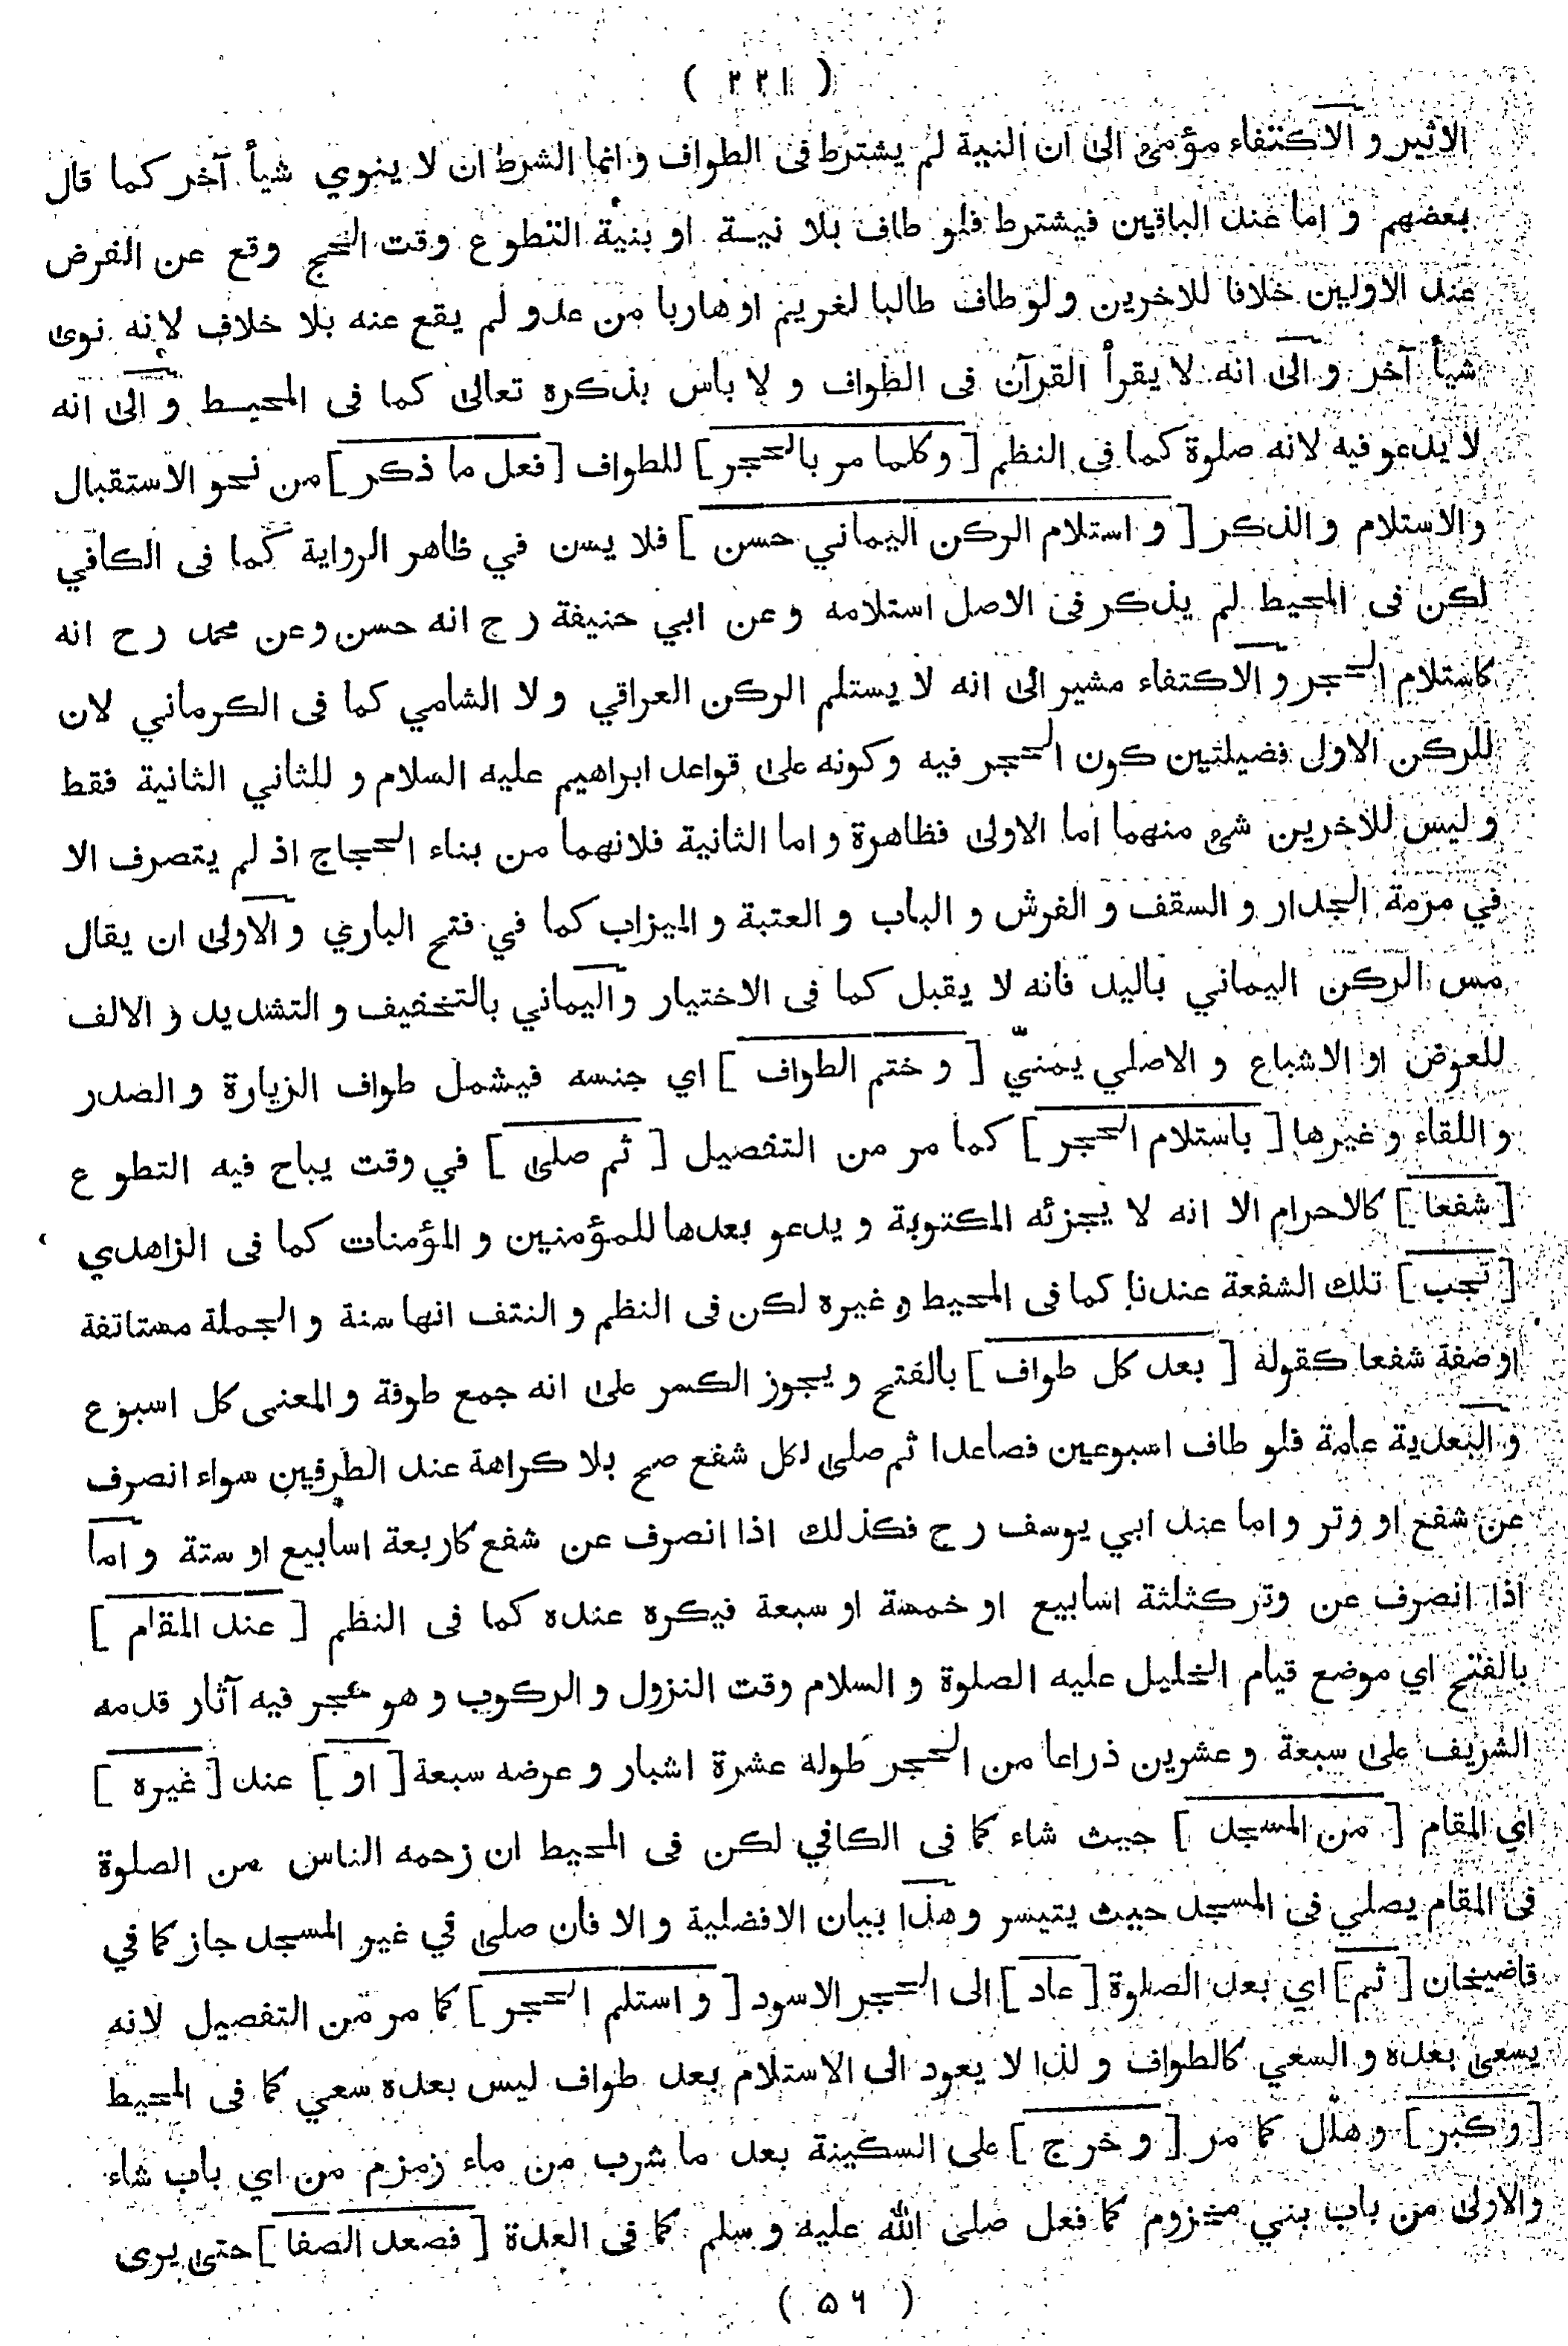 ( ٢٢١ )
الاثير و الاكتفاء مؤمئ الى ان النية لم يشترط فى الطواف و انما الشرط ان لا ينوي شيأ آخر كما قال
بعضهم و اما عند الباقين فيشترط فلو طاف بلا نية او بنية التطوع وقت الحج وقع عن الفرض
عند الاولين خلافا للاخرين ولو طاف طالبا لغريم او هاربا من عدو لم يقع عنه بلا خلاف لانه نوى
شيأ آخر و الى انه لا يقرأ القرآن فى الطواف و لا باس بذكره تعالى كما فى المحيط و الى انه
لا يدعو فيه لانه صلوة كما فى النظم [ وكلما مر بالحجر ] للطواف [ فعل ما ذكر ] من نحو الاستقبال
والاستلام والذكر [ و استلام الركن اليماني حسن ] فلا يسن في ظاهر الرواية كما فى الكافي
لكن فى المحيط لم يذكر فى الاصل استلامه وعن ابي حنيفة رح انه حسن وعن محمد رح انه
كاستلام الحجر و الاكتفاء مشير الى انه لا يستلم الركن العراقي ولا الشامي كما فى الكرماني لان
للركن الاول فضيلتين كون الحجر فيه وكونه على قواعد ابراهيم عليه السلام و للثاني الثانية فقط
و ليس للاخرين شئ منهما اما الاولى فظاهرة و اما الثانية فلانهما من بناء الحجاج اذ لم يتصرف الا
في مرمة الجدار و السقف و الفرش و الباب و العتبة و الميزاب كما في فتح الباري و الاولى ان يقال
مس الركن اليماني باليد فانه لا يقبل كما فى الاختيار واليماني بالتخفيف و التشديد و الالف
للعوض او الاشباع و الاصلي يمنيّ [ و ختم الطواف ] اي جنسه فيشمل طواف الزيارة و الصدر
و اللقاء و غيرها [ باستلام الحجر ] كما مر من التفصيل [ ثم صلى ] في وقت يباح فيه التطوع
[ شفعا ] كالاحرام الا انه لا يجزئه المكتوبة و يدعو بعدها للمؤمنين و المؤمنات كما فى الزاهدي
[ تجب ] تلك الشفعة عندنا كما فى المحيط و غيره لكن فى النظم و النتف انها سنة و الجملة مستانفة
او صفة شفعا كقوله [ بعد كل طواف ] بالفتح و يجوز الكسر على انه جمع طوفة و المعنى كل اسبوع
و البعدية عامة فلو طاف اسبوعين فصاعدا ثم صلى لكل شفع صح بلا كراهة عند الطرفين سواء انصرف
عن شفع او وتر و اما عند ابي يوسف رح فكذلك اذا انصرف عن شفع كاربعة اسابيع او ستة و اما
اذا انصرف عن وتر كثلثة اسابيع او خمسة او سبعة فيكره عنده كما فى النظم [ عند المقام ]
بالفتح اي موضع قيام الخليل عليه الصلوة و السلام وقت النزول و الركوب و هو حجر فيه آثار قدمه
الشريف على سبعة و عشرين ذراعا من الحجر طوله عشرة اشبار و عرضه سبعة [ او ] عند [ غيره ]
اي المقام [ من المسجد ] حيث شاء كما فى الكافي لكن فى المحيط ان زحمه الناس من الصلوة
فى المقام يصلي فى المسجد حيث يتيسر و هذا بيان الافضلية و الا فان صلى في غير المسجد جاز كما في
قاضيخان [ ثم ] اي بعد الصلوة [ عاد ] الى الحجر الاسود [ و استلم الحجر ] كما مر من التفصيل لانه
يسعى بعده و السعي كالطواف و لذا لا يعود الى الاستلام بعد طواف ليس بعده سعي كما فى المحيط
[ و كبر ] و هلّل كما مر [ و خرج ] على السكينة بعد ما شرب من ماء زمزم من اي باب شاء
والاولى من باب بني مخزوم كما فعل صلى الله عليه و سلم كما فى العدة [ فصعد الصفا ] حتى يرى
( ٥٦ )